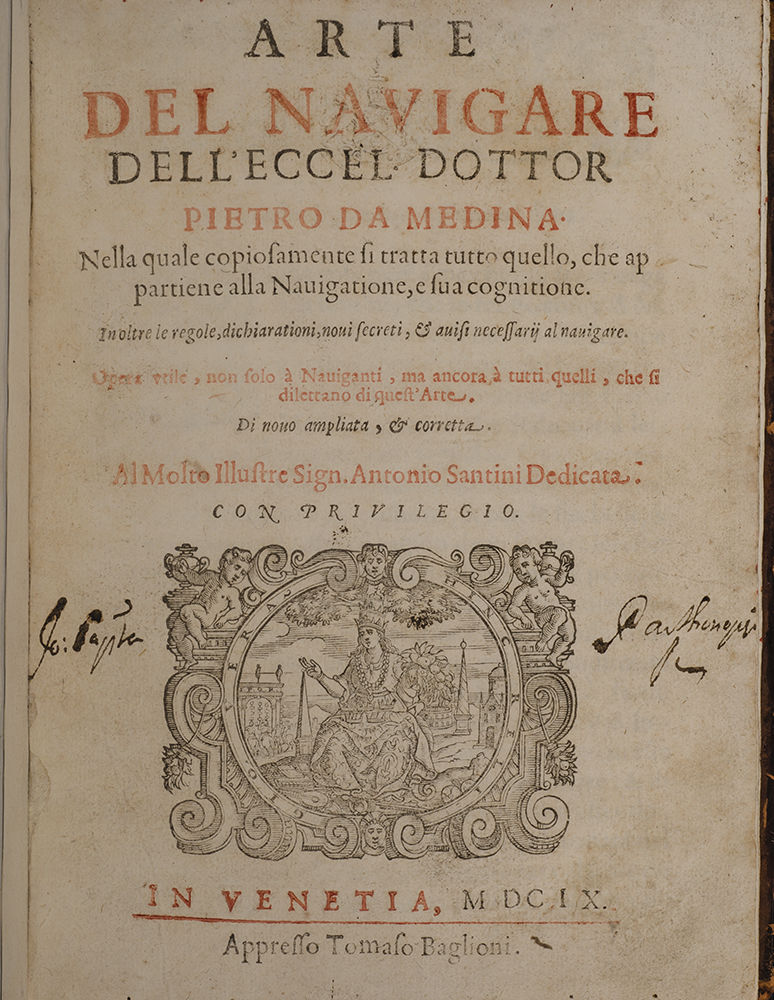 ARTE
DEL NAVIGARE
DELL'ECCEL. DOTTOR
PIETRO DA MEDINA.
Nella quale copioſamente ſi tratta tutto quello, che ap
partiene alla Nauigatione, e ſua cognitione.
Inoltre le regole, dichiarationi, noui ſecreti, & auiſi neceſſarij al nauigare.
Opera vtile, non ſolo à Nauiganti, ma ancora à tutti quelli, che ſi
dilettano di queſt'Arte.
Di nouo ampliata, & corretta.
Al Molto Illuſtre Sign. Antonio Santini Dedicata.
CON PRIVILEGIO.
HINC
Io:
IN VENETIA, MDCIX.
Appreſſo Tomaſo Baglioni.